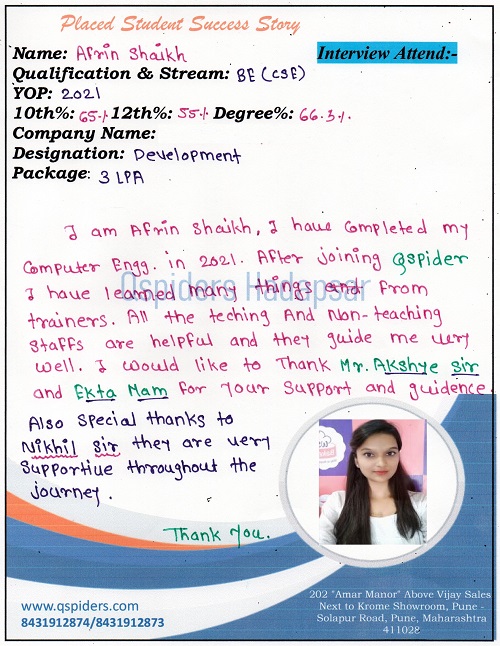 Placed Student Success Story
Name: Afrin Shaikh
Interview Attend:-
Qualification & Stream: BE (CSE)
YOP: 2021
10th%: 65% 12th%: 55% Degree%: 66.3%.
Company Name:
Designation: Development
Package: 3 LPA
I am Afrin Shaikh, I have completed my
Computer Engg. in 2021. After joining Qspider
I have learned many things and from
Qspiders Hadapsar
trainers. All the teching And Non-teaching
staffs are helpful and they guide me very
well. I would like to Thank Mr. Akshye sir
and Ekta Mam for your support and guidence.
Also special thanks to
Nikhil sir they are very
supportive throughout the
journey.
Thank You.
www.qspiders.com
8431912874/8431912873
202 "Amar Manor" Above Vijay Sales
Next to Krome Showroom, Pune -
Solapur Road, Pune, Maharashtra
411028